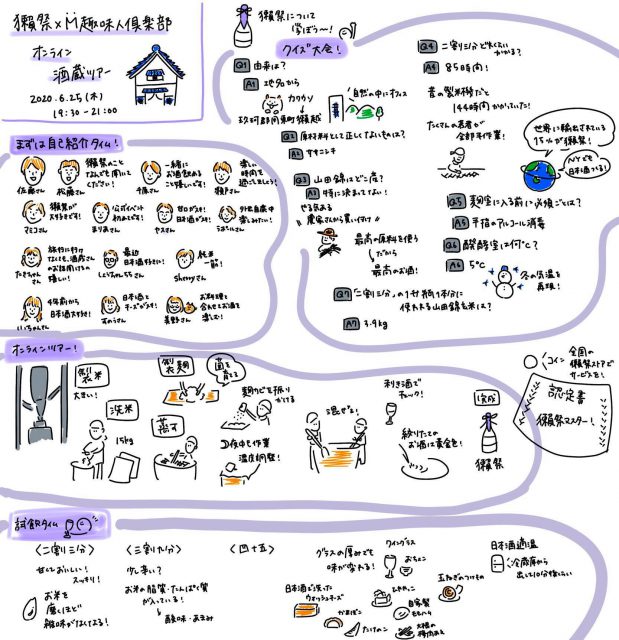 獺祭×M趣味人倶楽部
オンライン
酒蔵ツアー
2020.6.25(木)
19:30-21:00
獺祭について
学ぼう〜!
クイズ大会!
Q1 由来は?
A1 地名から
カワウソ
自然の中にオフィス
Q2 原材料として正しくないものは?
A2 ササニシキ
Q3 山田錦はどこ産?
A3 特に決まってない!
やる気ある
農家さんから買い付け
最高の原料を使う
だから
最高のお酒!
Q4 二割三分どれくらい
かかる?
A4 85時間!
昔の製米機だと
144時間かかっていた!
たくさんの若者が
全部手作業!
世界に輸出されている
15%が獺祭!
NYでも
日本酒つくる!
Q5 麹室に入る前に必須なことは?
A5 手指のアルコール消毒
Q6 醗酵室は何℃?
A6 5℃
冬の気温を
再現!
Q7 「二割三分」の1升瓶1本分に
使われる山田錦玄米は?
A7 3.9kg
まずは自己紹介タイム!
佐藤さん
松藤さん
獺祭のこと
なんでも聞いて
ください!
千原さん
一緒に
お酒飲める
こと嬉しいです!
楽しい
時間を
過ごしましょう!
マミコさん
獺祭が
大好きです!
まりあさん
公式イベント
初めてです!
ヤスさん
甘口が好き!
日本酒が好き!
最近
日本酒好きに!
しんちゃんさん
Sherryさん
純米
一筋!
いっちゃんさん
4年前から
日本酒大好き!
日本酒と
チーズが大好き!
美野さん
お料理と
合わせてお酒を
楽しむ!
オンラインツアー!
製米
大きい!
洗米
15kg
蒸す
製麹
菌を
育てる
麹カビを振り
かける
夜中も作業
温度調整!
混ぜる!
利き酒で
チェック!
絞りたての
お酒は黄金色!
完成
獺祭
コイン
全国の
獺祭ストアで
サービスを!
認定書
獺祭マスター!
試飲タイム
〈二割三分〉
甘くておいしい!
スッキリ!
お米を
磨くほど
雑味がなくなる!
〈三割九分〉
少し辛い?
お米の脂質・たんぱく質
が入っている!
酸味・あまみ
〈四十五〉
グラスの厚みでも
味が変わる!
ワイングラス
おちょこ
日本酒で洗った
ウォッシュチーズ
かまぼこ
たけのこ
自家製
玉ねぎのつけもの
大根の
日本酒適温
冷蔵庫から
出して10分後くらい